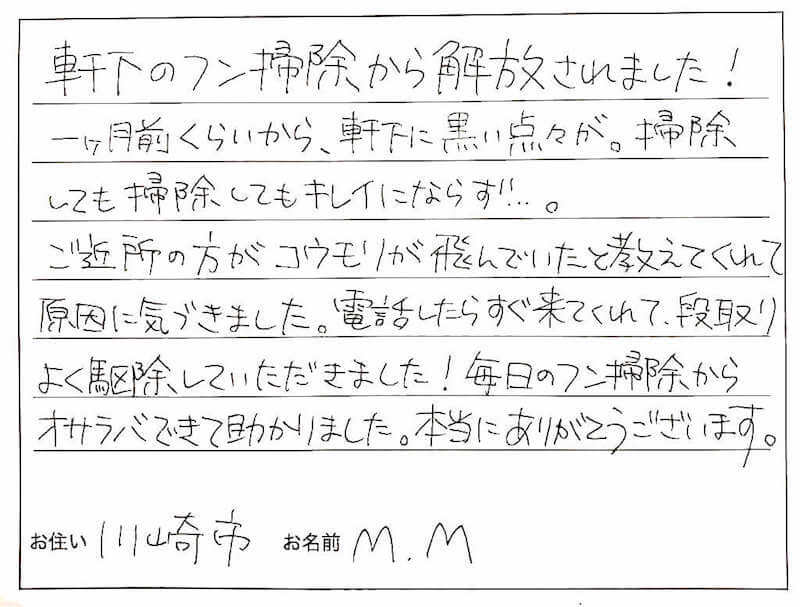 軒下のフン掃除から解放されました！
一ヶ月前くらいから、軒下に黒い点々が。掃除
しても掃除してもキレイにならず…。
ご近所の方がコウモリが飛んでいたと教えてくれて
原因に気づきました。電話したらすぐ来てくれて、段取り
よく駆除していただきました！毎日のフン掃除から
オサラバできて助かりました。本当にありがとうございます。
お住い 川崎市 お名前 M.M